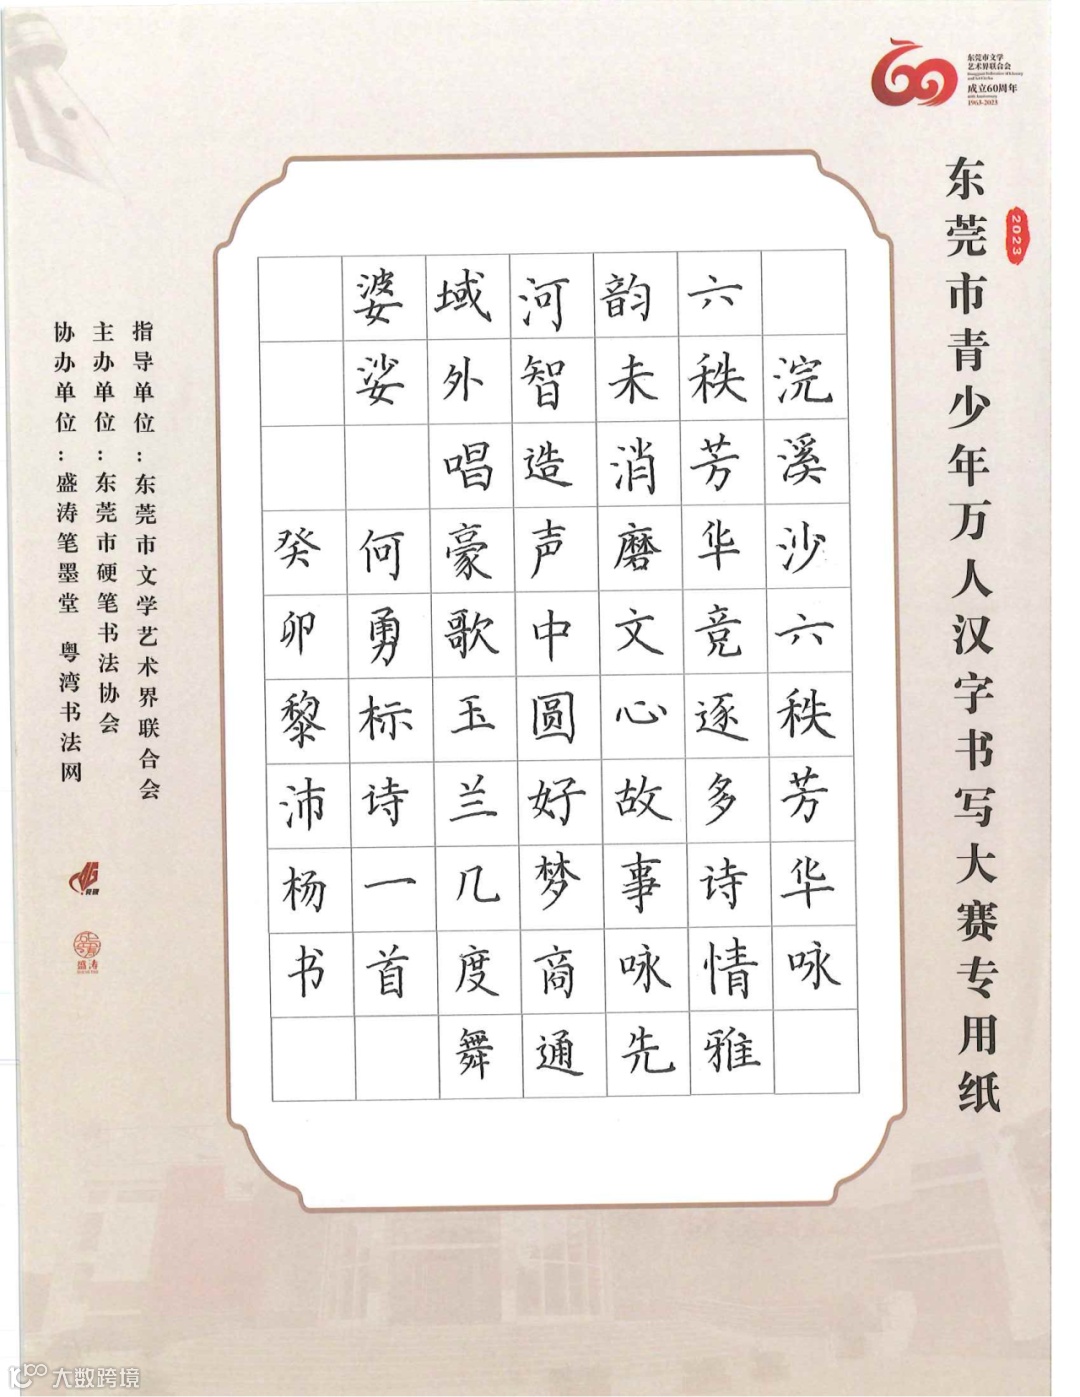 60
东莞市文学
艺术界联合会
成立60周年
1963-2023
2023
东莞市青少年万人汉字书写大赛专用纸
浣溪沙六秩芳华咏
六秩芳华竞逐多诗情雅
韵未消磨文心故事咏先
河智造声中圆好梦商通
域外唱豪歌玉兰几度舞
婆娑 何勇标诗一首
癸卯黎沛杨书
指导单位：东莞市文学艺术界联合会
主办单位：东莞市硬笔书法协会
协办单位：盛涛笔墨堂 粤湾书法网
盛涛
大数跨境